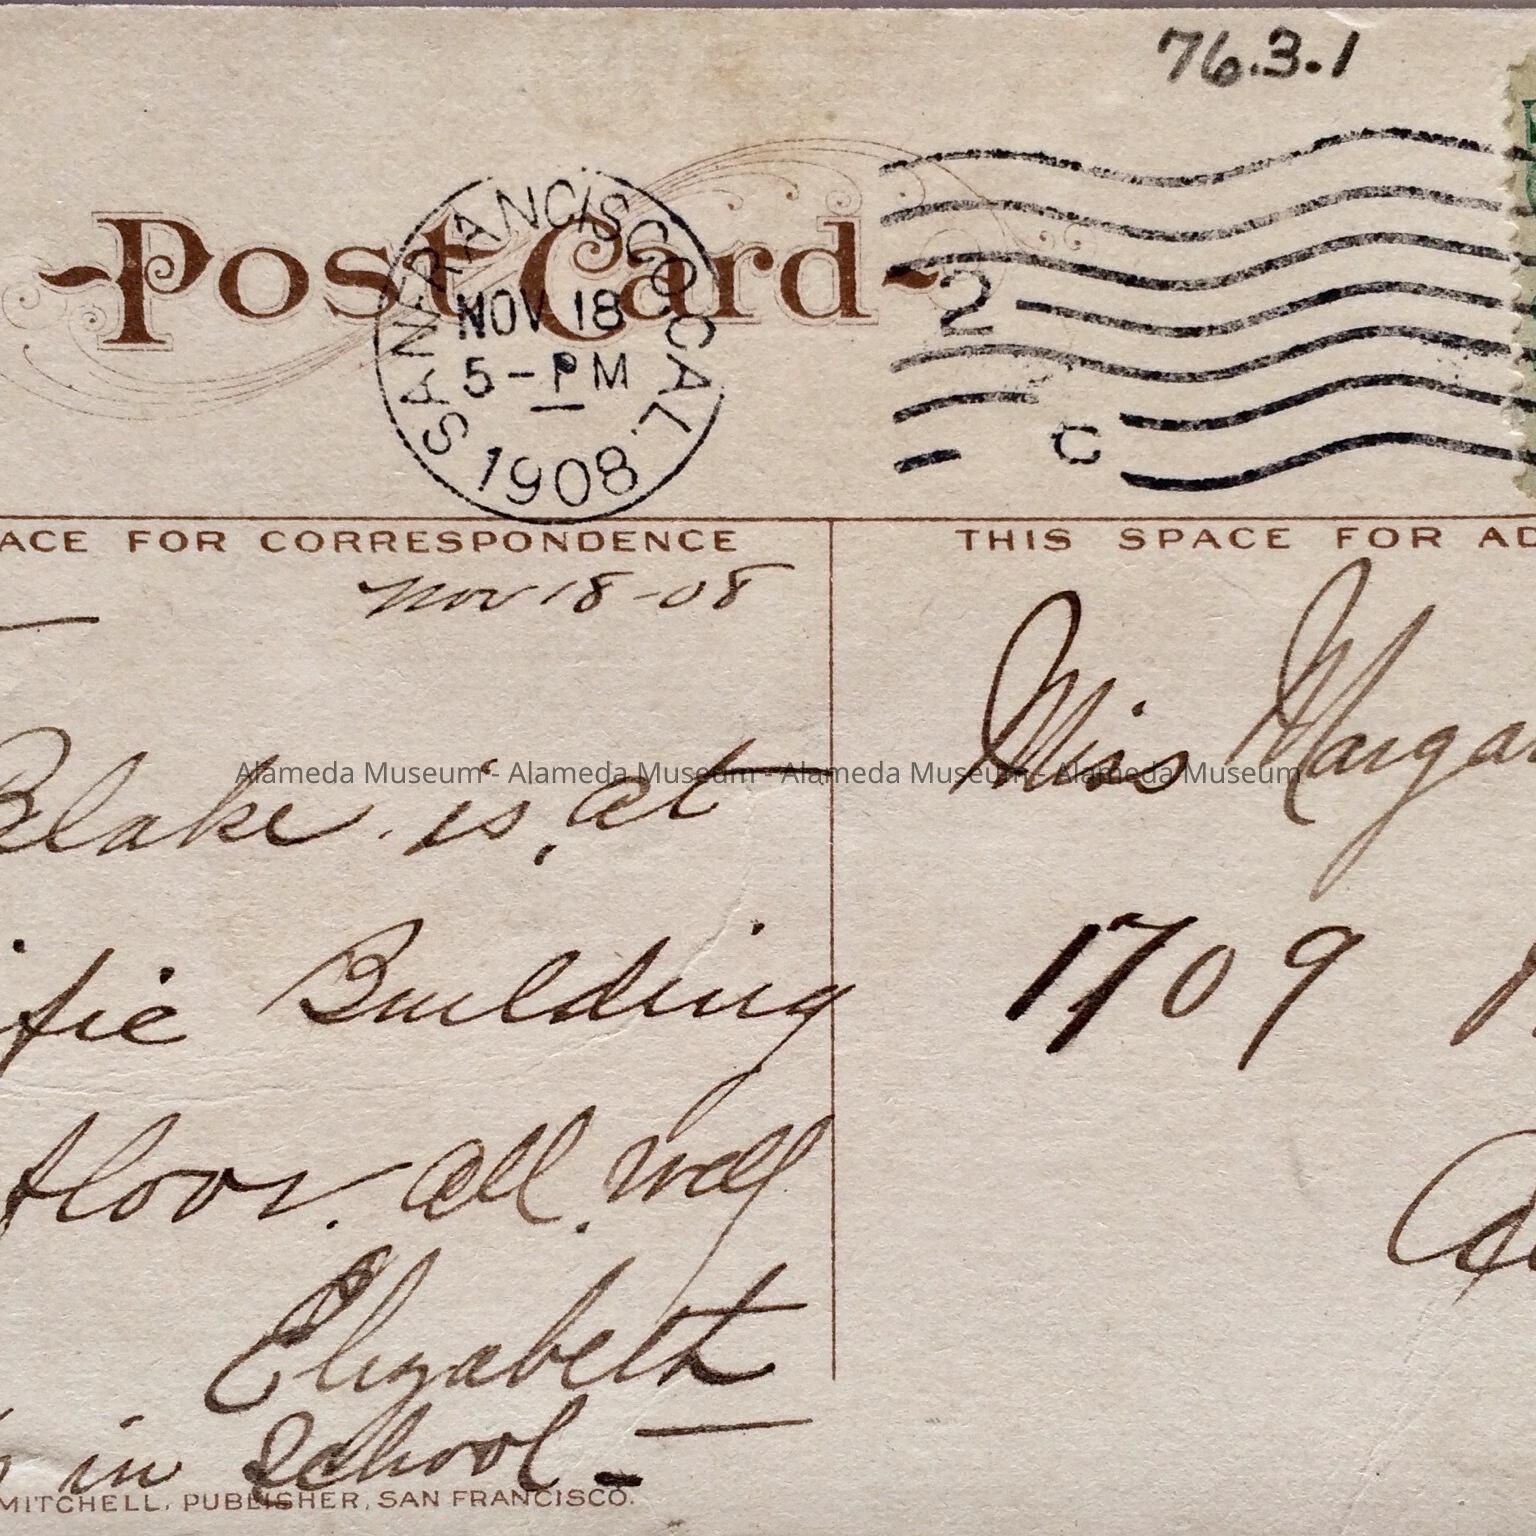 76.3.1
Post Card
SAN FRANCISCO, CAL.
NOV 18
5-PM
1908
2
C
ACE FOR CORRESPONDENCE
THIS SPACE FOR AD
Nov 18-08
Blake. is, at
Miss Margar
Alameda Museum - Alameda Museum - Alameda Museum - Alameda Museum
ific Building
1709
floor. all. well
Elizabeth
in School
MITCHELL, PUBLISHER, SAN FRANCISCO.